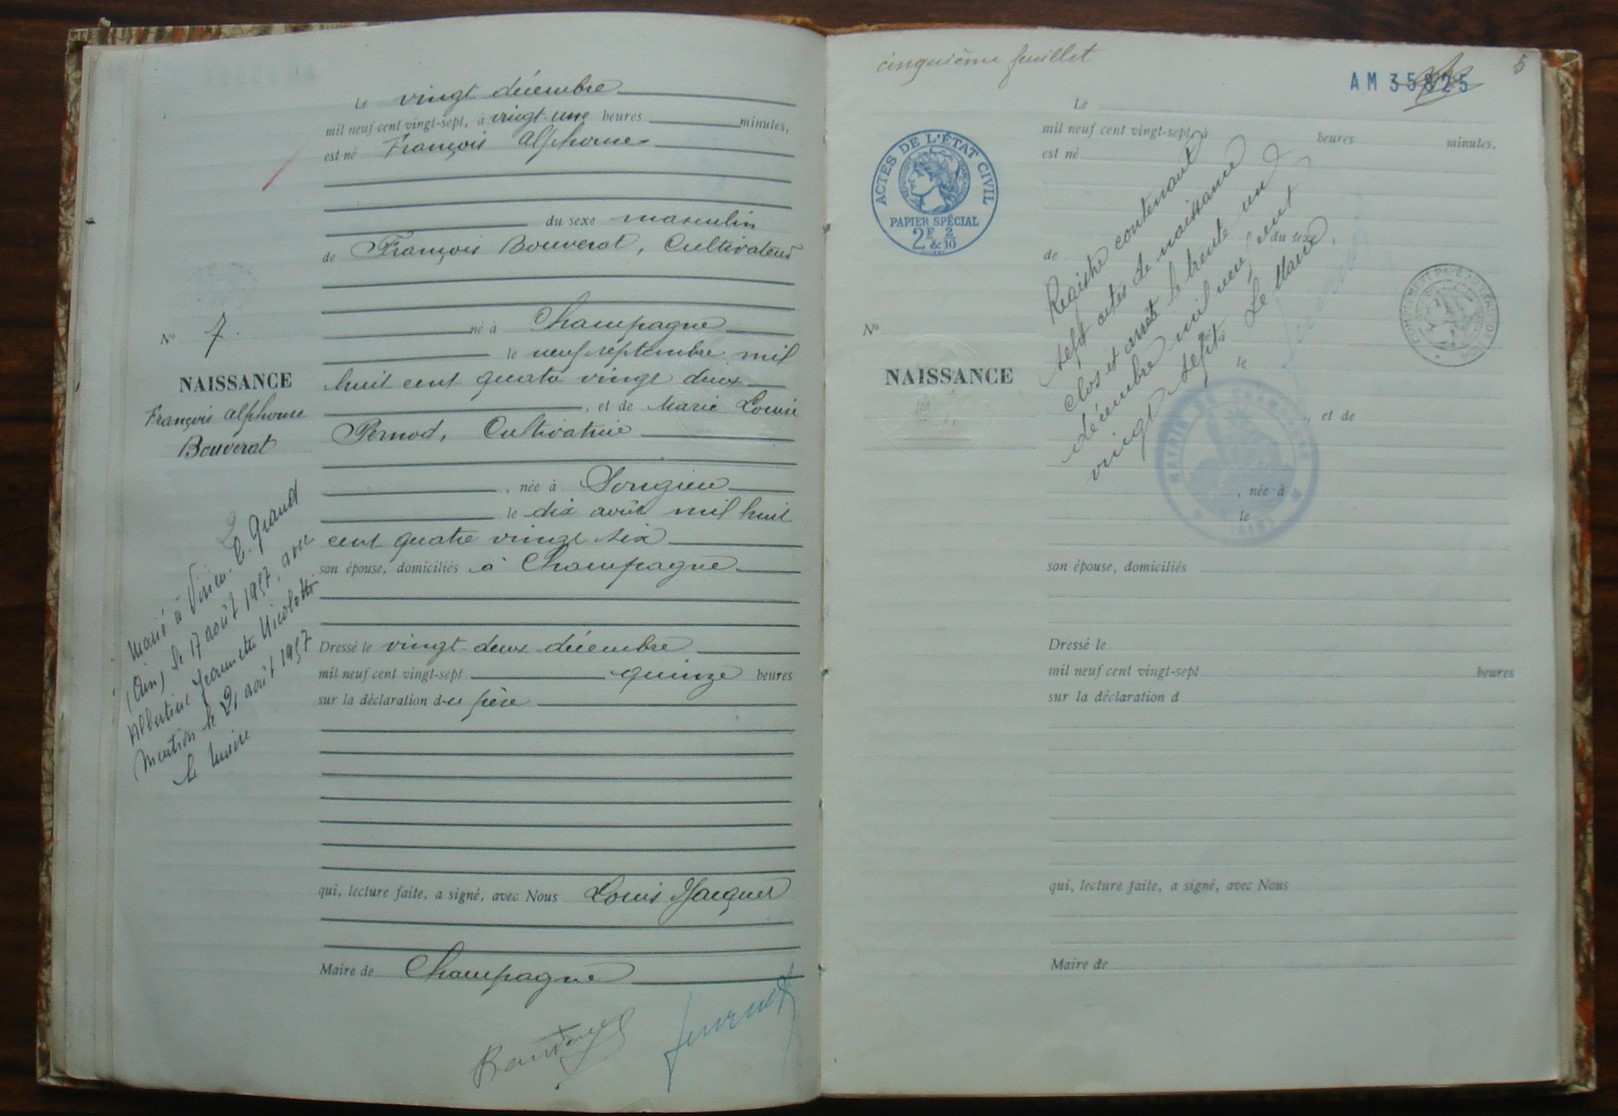 Le vingt décembre
mil neuf cent vingt-sept, à vingt une heures minutes,
est né François Alphonse
du sexe masculin
de François Bouverat, Cultivateur
né à Champagne
le neuf septembre mil
huit cent quatre vingt deux
, et de Marie Louise
Pernod, Cultivatrice
, née à Songieu
le dix août mil huit
cent quatre vingt six
son épouse, domiciliés à Champagne
Dressé le vingt deux décembre
mil neuf cent vingt-sept quinze heures
sur la déclaration du père
qui, lecture faite, a signé, avec Nous Louis
Maire de Champagne
No 7.
NAISSANCE
François Alphonse
Bouverat
Marié à Virieu-le-Grand
(Ain) le 17 août 1957, avec
Albertine Jeannette Nicoletti
Mention le 21 août 1957
le Maire
cinquième feuillet
5
AM 35825
ACTES DE L'ÉTAT CIVIL
PAPIER SPÉCIAL
2F 2
& 10
Le
mil neuf cent vingt-sept, à heures minutes,
est né
du sexe
de
No
NAISSANCE
le
, et de
, née à
le
son épouse, domiciliés
Dressé le
mil neuf cent vingt-sept heures
sur la déclaration d
qui, lecture faite, a signé, avec Nous
Maire de
Registre contenant
sept actes de naissance
clos et arrêté le trente un
décembre mil neuf cent
vingt sept. Le Maire,